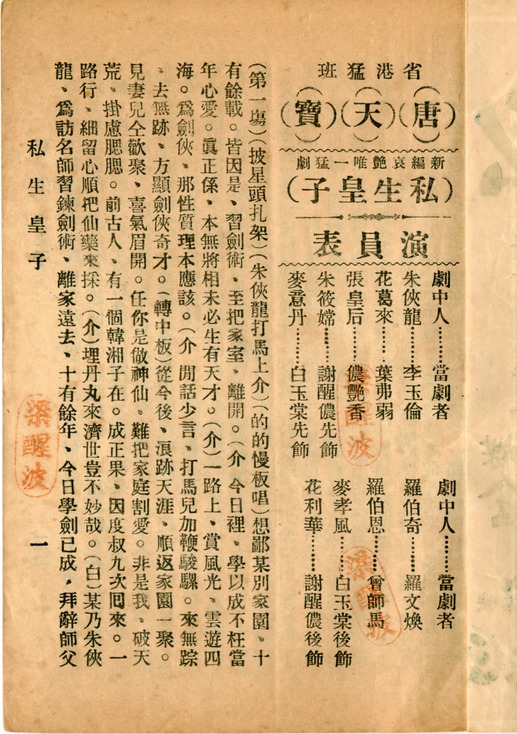 省港班猛
(唐)(天)(寶)
新編哀艷唯一猛劇
(私生皇子)
演員表
劇中人……當劇者
朱俠龍……李玉倫
花葛來……葉弗弱
張皇后……儂艷香
朱筱嫦……謝醒儂先飾
麥意丹……白玉棠先飾
劇中人……當劇者
羅伯奇……羅文煥
羅伯恩……曾師馬
麥孝風……白玉棠後飾
花利華……謝醒儂後飾
(第一塲)(披星頭扎架)(朱俠龍打馬上介)(的的慢板唱)想鄙某別家園、十
有餘載。皆因是、習劍術、至把家室、離開。(介)今日裡、學以成不枉當
年心愛。眞正係、本無將相未必生有天才。(介)一路上、賞風光、雲遊四
海。爲劍俠、那性質理本應該。(介)閒話少言、打馬兒加鞭駿騾。來無踪
、去無跡、方顯劍俠奇才。(轉中板)從今後、浪跡天涯、順返家園一聚。
見妻兒仝歡聚、喜氣眉開。任你是做神仙、難把家庭割愛。非是我、破天
荒、掛慮腮腮。前古人、有一個韓湘子在。成正果、因度叔九次囘來。一
路行、細留心順把仙藥來採。(介)埋丹丸來濟世豈不妙哉。(白)某乃朱俠
龍、爲訪名師習鍊劍術、離家遠去、十有餘年、今日學劍已成、拜辭師父
私生皇子
一
梁醒波
梁醒波
梁醒波